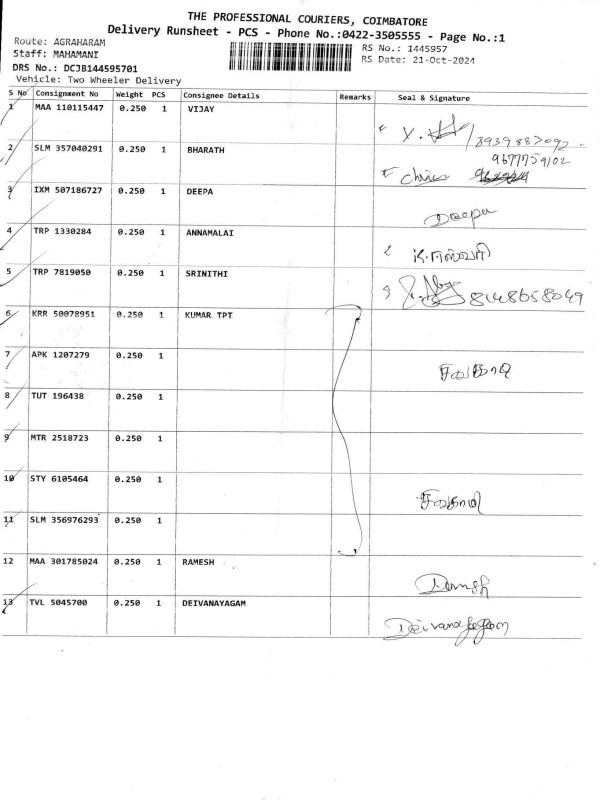 THE PROFESSIONAL COURIERS, COIMBATORE
Delivery Runsheet - PCS - Phone No.:0422-3505555 - Page No.:1
Route: AGRAHARAM
Staff: MAHAMANI
RS No.: 1445957
RS Date: 21-Oct-2024
DRS No.: DCJB144595701
Vehicle: Two Wheeler Delivery
S No Consignment No Weight PCS Consignee Details Remarks Seal & Signature
1 MAA 110115447 0.250 1 VIJAY
8939883092
2 SLM 357040291 0.250 1 BHARATH
9677759102
3 IXM 507186727 0.250 1 DEEPA
Deepa
4 TRP 1330284 0.250 1 ANNAMALAI
க.ஈஸ்வரி
5 TRP 7819050 0.250 1 SRINITHI
8148658049
6 KRR 50078951 0.250 1 KUMAR TPT
7 APK 1207279 0.250 1
8 TUT 196438 0.250 1
9 MTR 2518723 0.250 1
10 STY 6105464 0.250 1
சிவகாமி
11 SLM 356976293 0.250 1
12 MAA 301785024 0.250 1 RAMESH
13 TVL 5045700 0.250 1 DEIVANAYAGAM
Deivanayagam